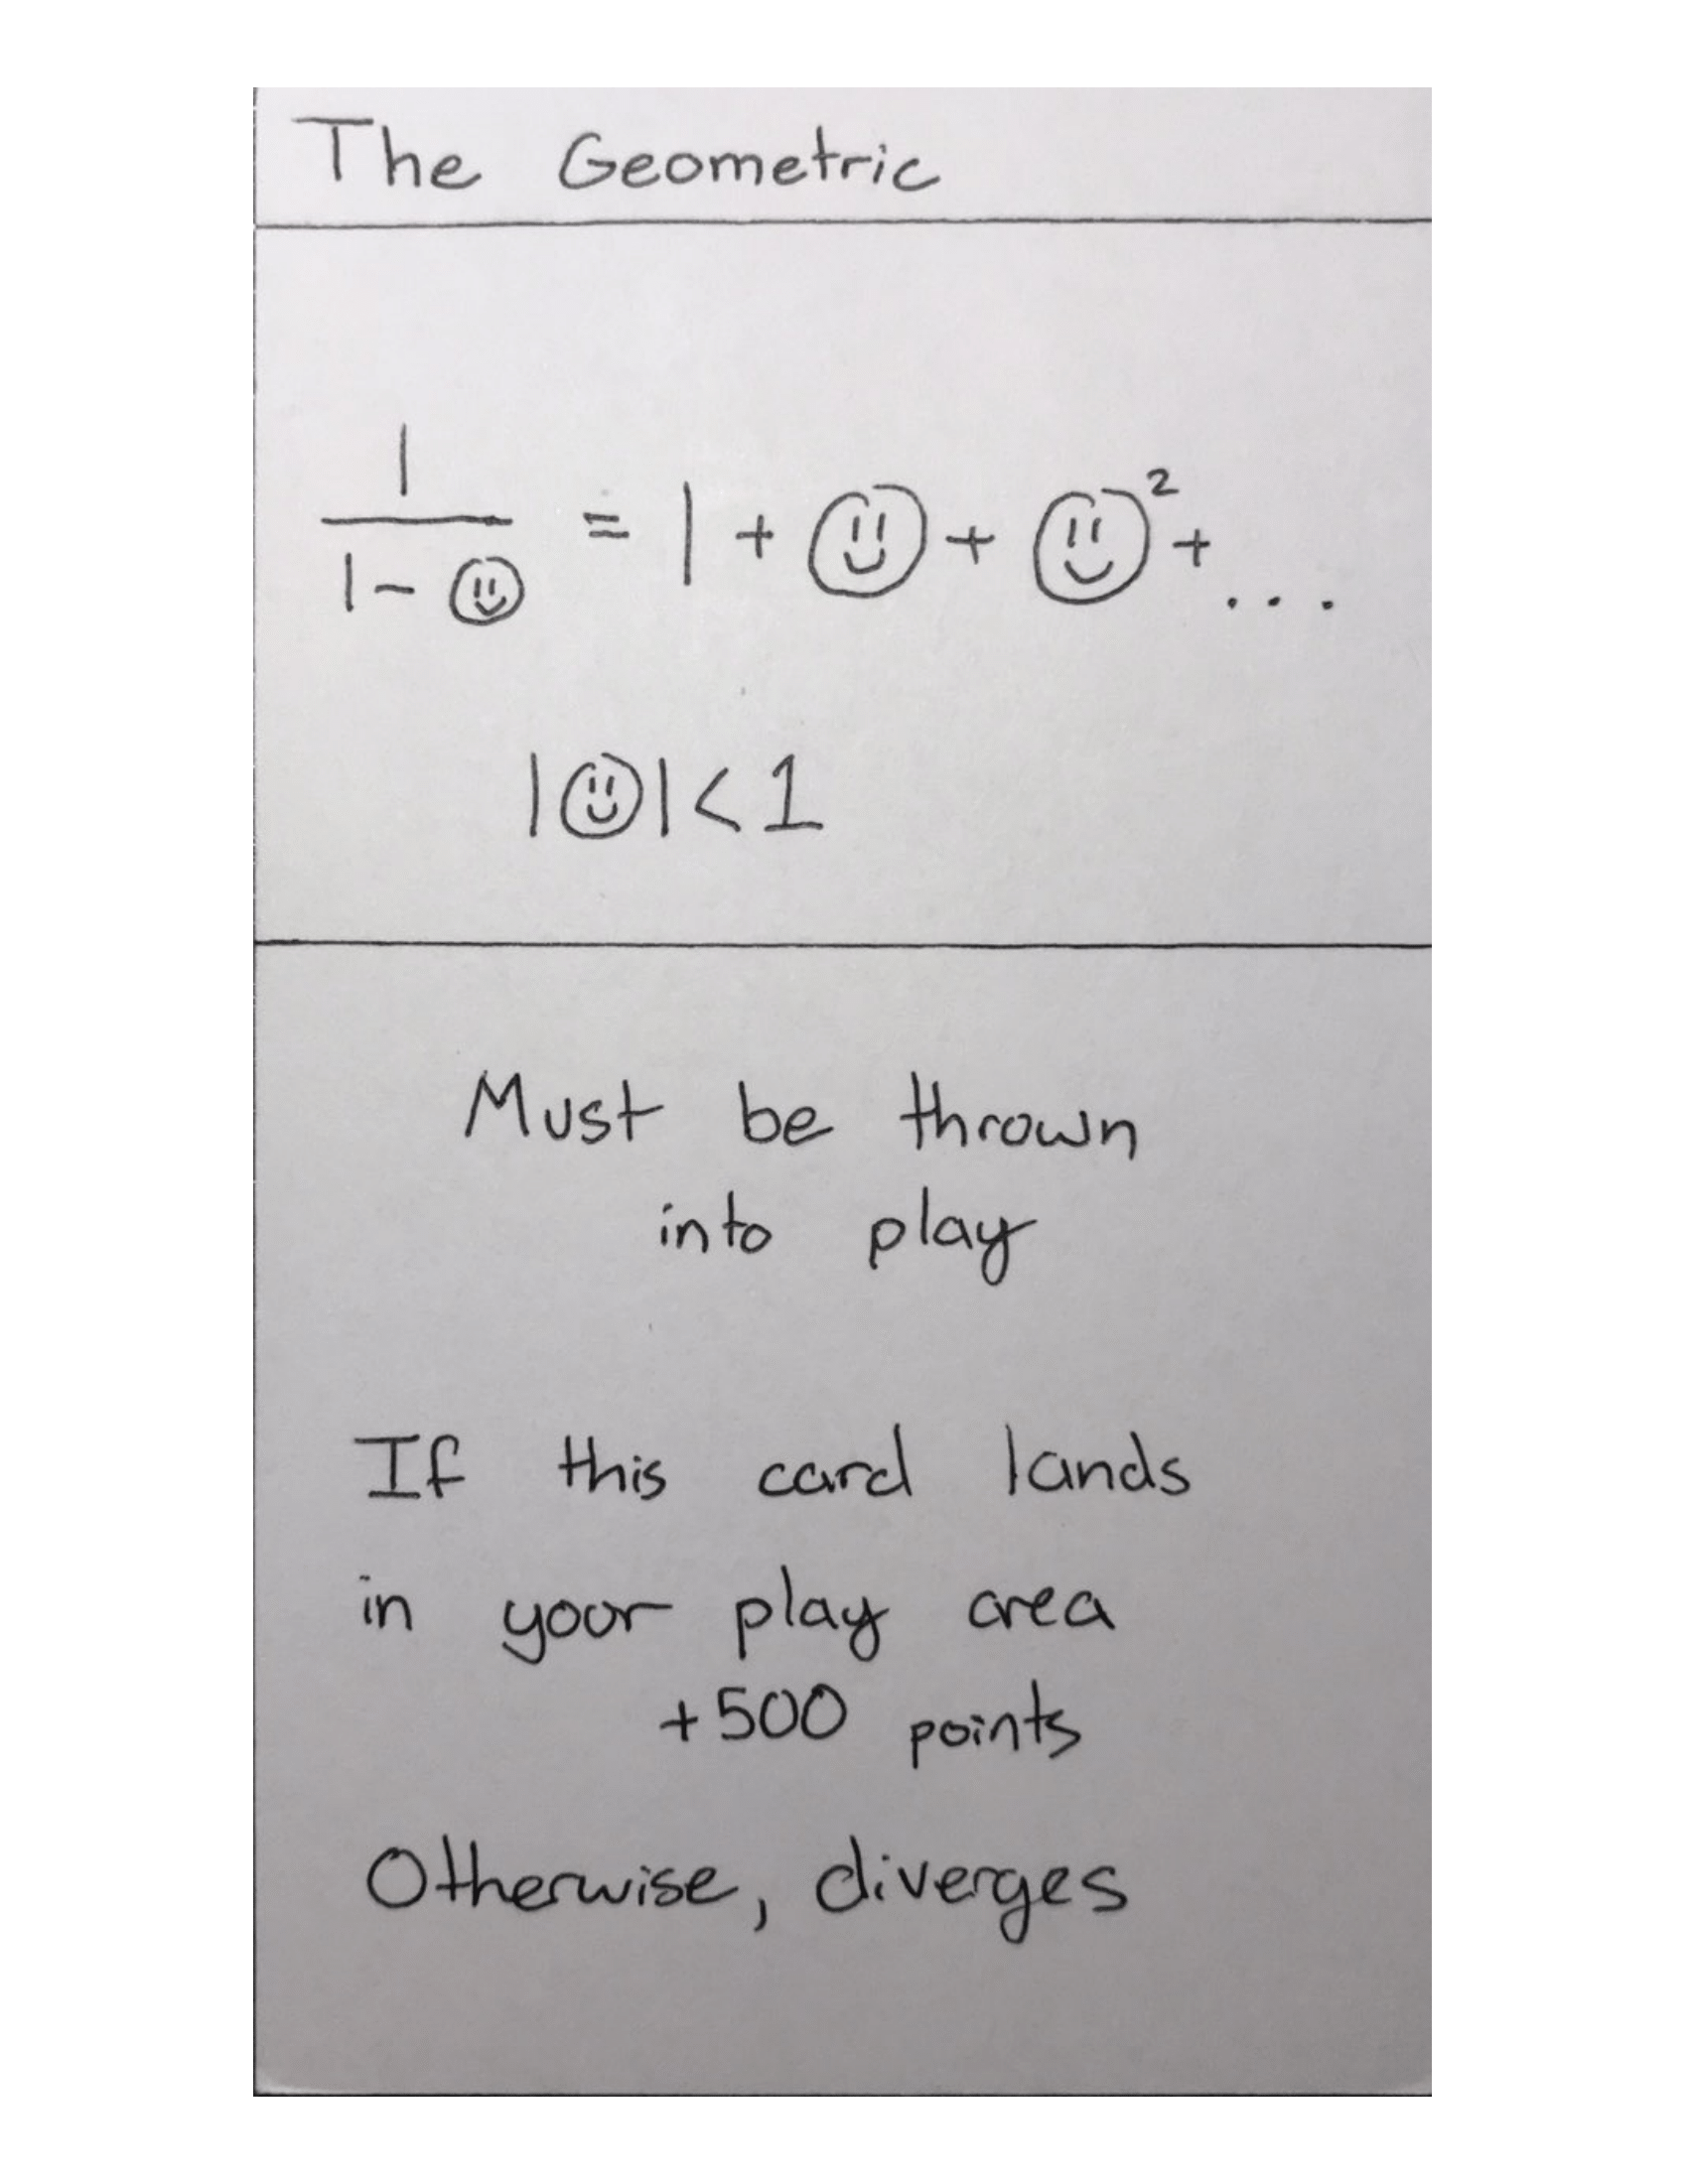 The Geometric
1/(1-☺) = 1 + ☺ + ☺² + ...
|☺| < 1
Must be thrown
into play
If this card lands
in your play area
+500 points
Otherwise, diverges